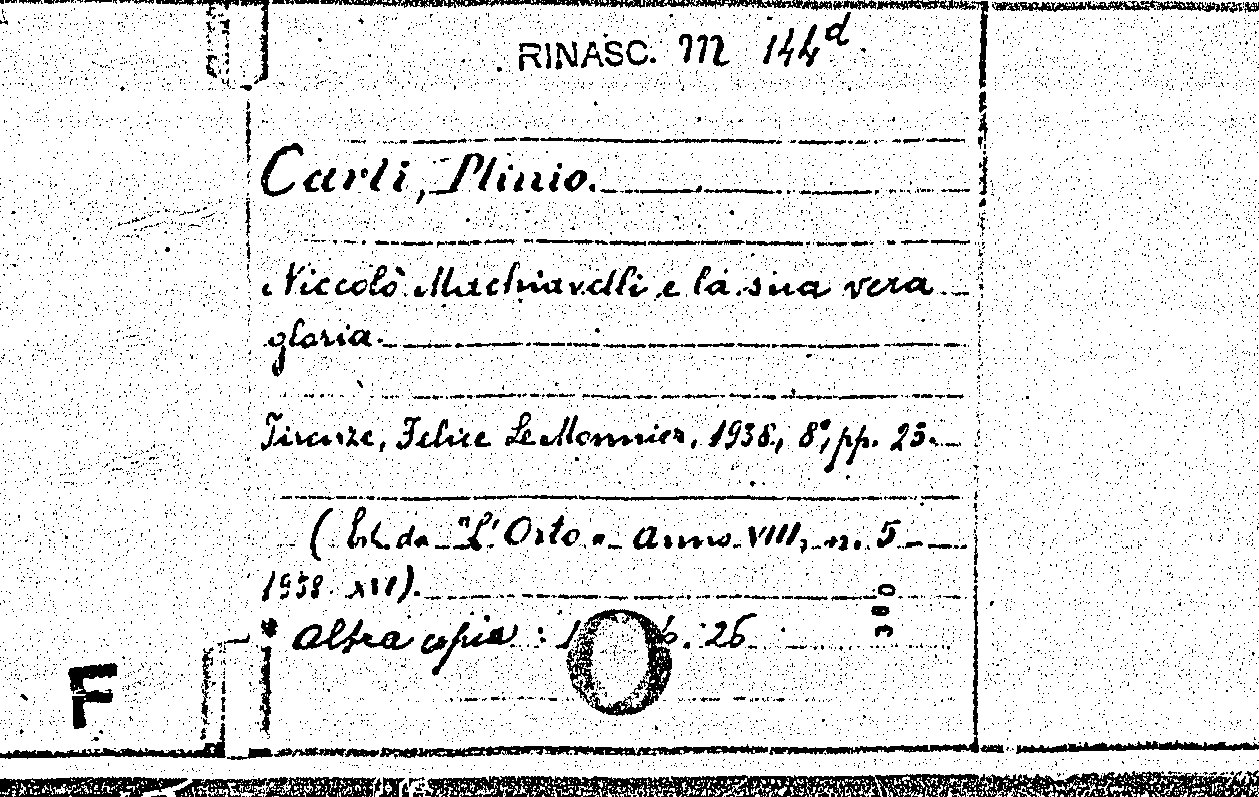 RINASC. M 144d
Carli, Plinio.
Niccolò Machiavelli e la sua vera
gloria.
Firenze, Felice Le Monnier, 1938, 8°, pp. 25.
(Est. da "L'Orto" Anno VIII, n. 5
1938 XVI).
Altra copia : 26
300
F